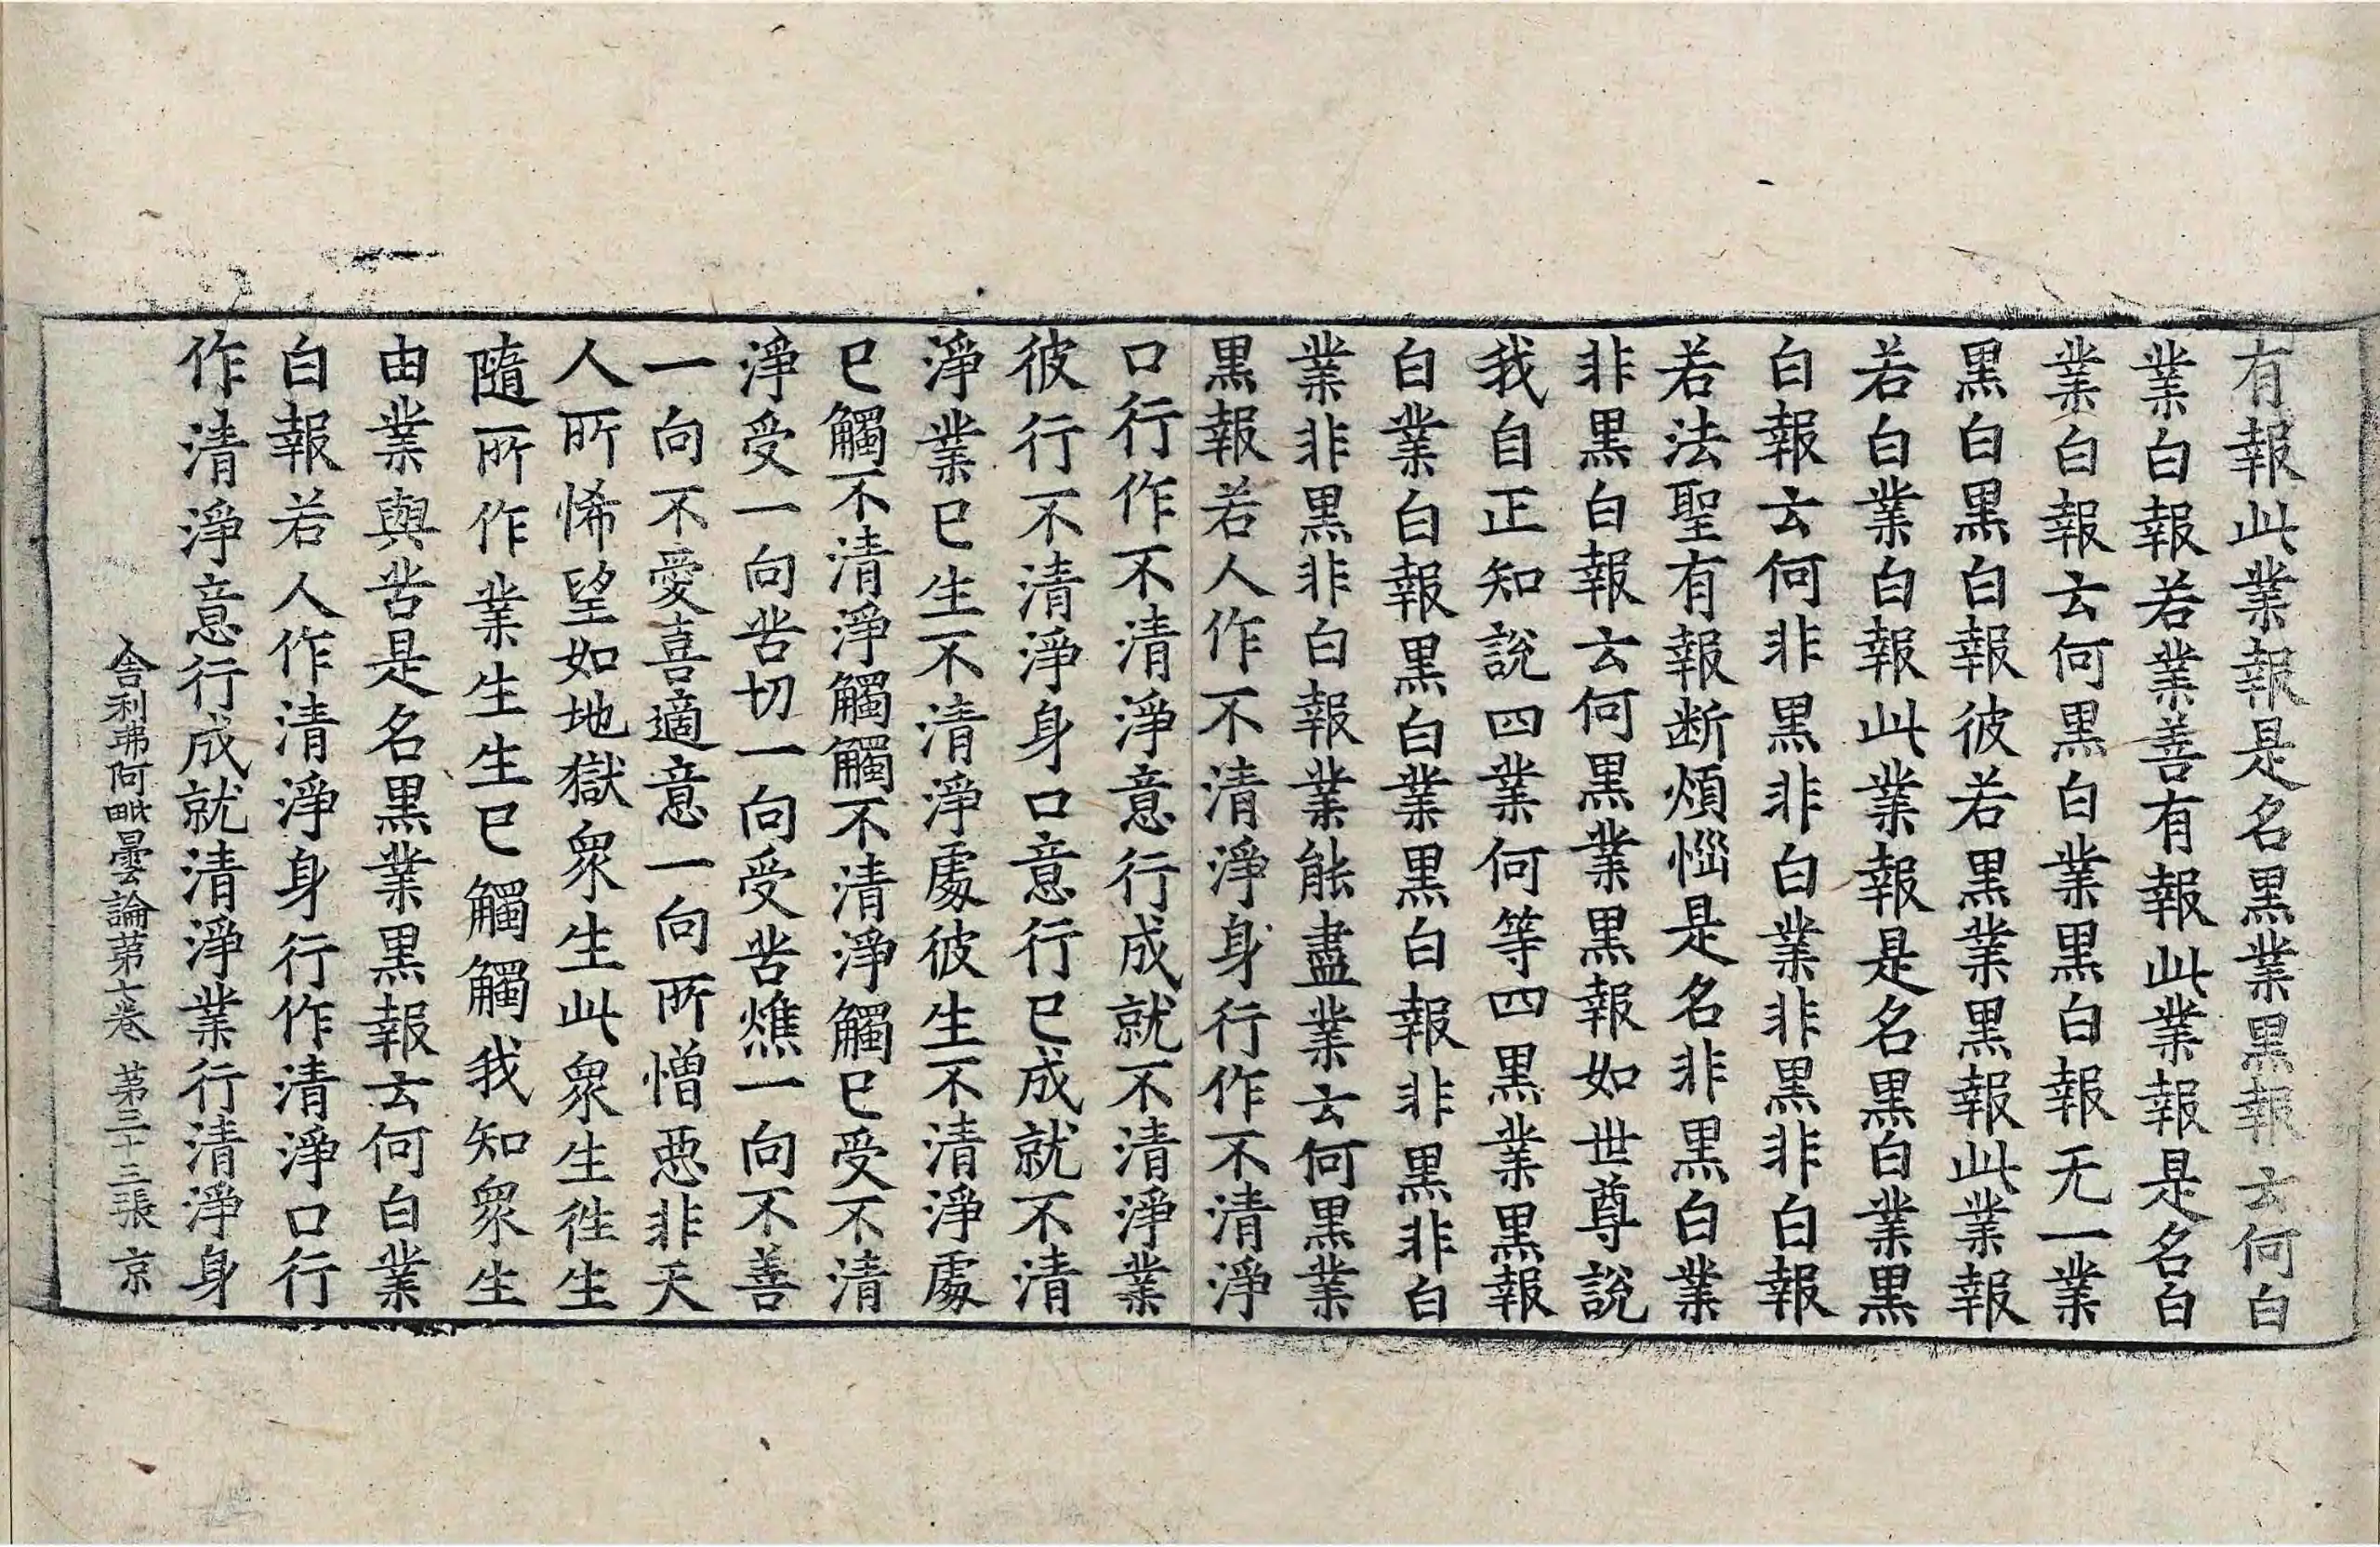 有報此業報是名黑業黑報云何白
業白報若業善有報此業報是名白
業白報云何黑白業黑白報无一業
黑白黑白報彼若黑業黑報此業報
若白業白報此業報是名黑白業黑
白報云何非黑非白業非黑非白報
若法聖有報断煩惱是名非黑白業
非黑白報云何黑業黑報如世尊說
我自正知說四業何等四黑業黑報
白業白報黑白業黑白報非黑非白
業非黑非白報業能盡業云何黑業
黑報若人作不清淨身行作不清淨
口行作不清淨意行成就不清淨業
彼行不清淨身口意行已成就不清
淨業已生不清淨處彼生不清淨處
已觸不清淨觸觸不清淨觸已受不清
淨受一向苦切一向受苦燋一向不善
一向不愛喜適意一向所憎惡非天
人所悕望如地獄眾生此眾生徃生
隨所作業生生已觸觸我知眾生
由業與苦是名黑業黑報云何白業
白報若人作清淨身行作清淨口行
作清淨意行成就清淨業行清淨身
舍利弗阿毗曇論第七卷 第三十三張 京